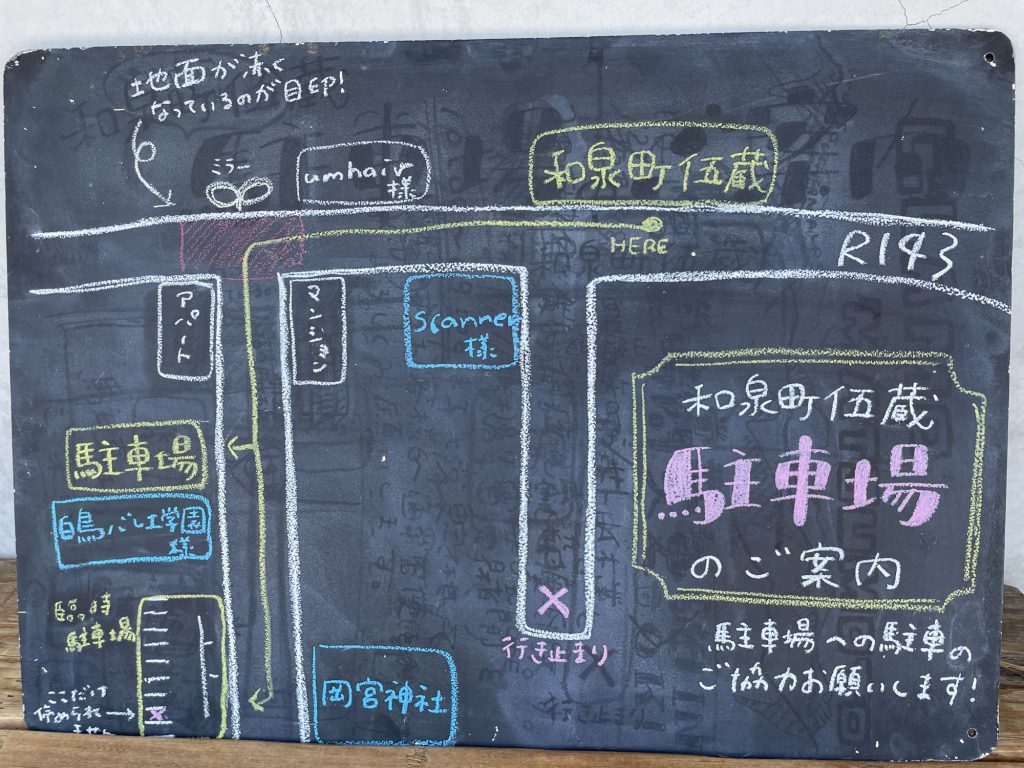 地面が赤く
なっているのが目印!
ミラー
umhair
様
和泉町伍蔵
HERE
R143
アパート
マンション
Scanner
様
和泉町伍蔵
駐車場
のご案内
駐車場
白鳥バレエ学園
様
臨時
駐車場
ここだけ
停められ
ません
行き止まり
岡宮神社
駐車場への駐車の
ご協力お願いします!